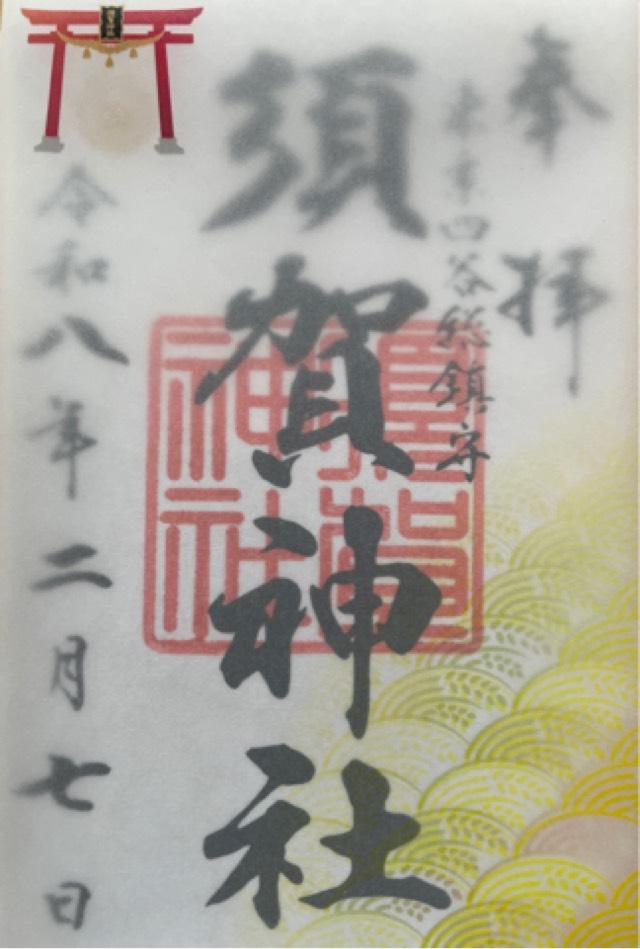 奉拝
東京四谷総鎮守
須賀神社
須賀神社
令和八年二月七日